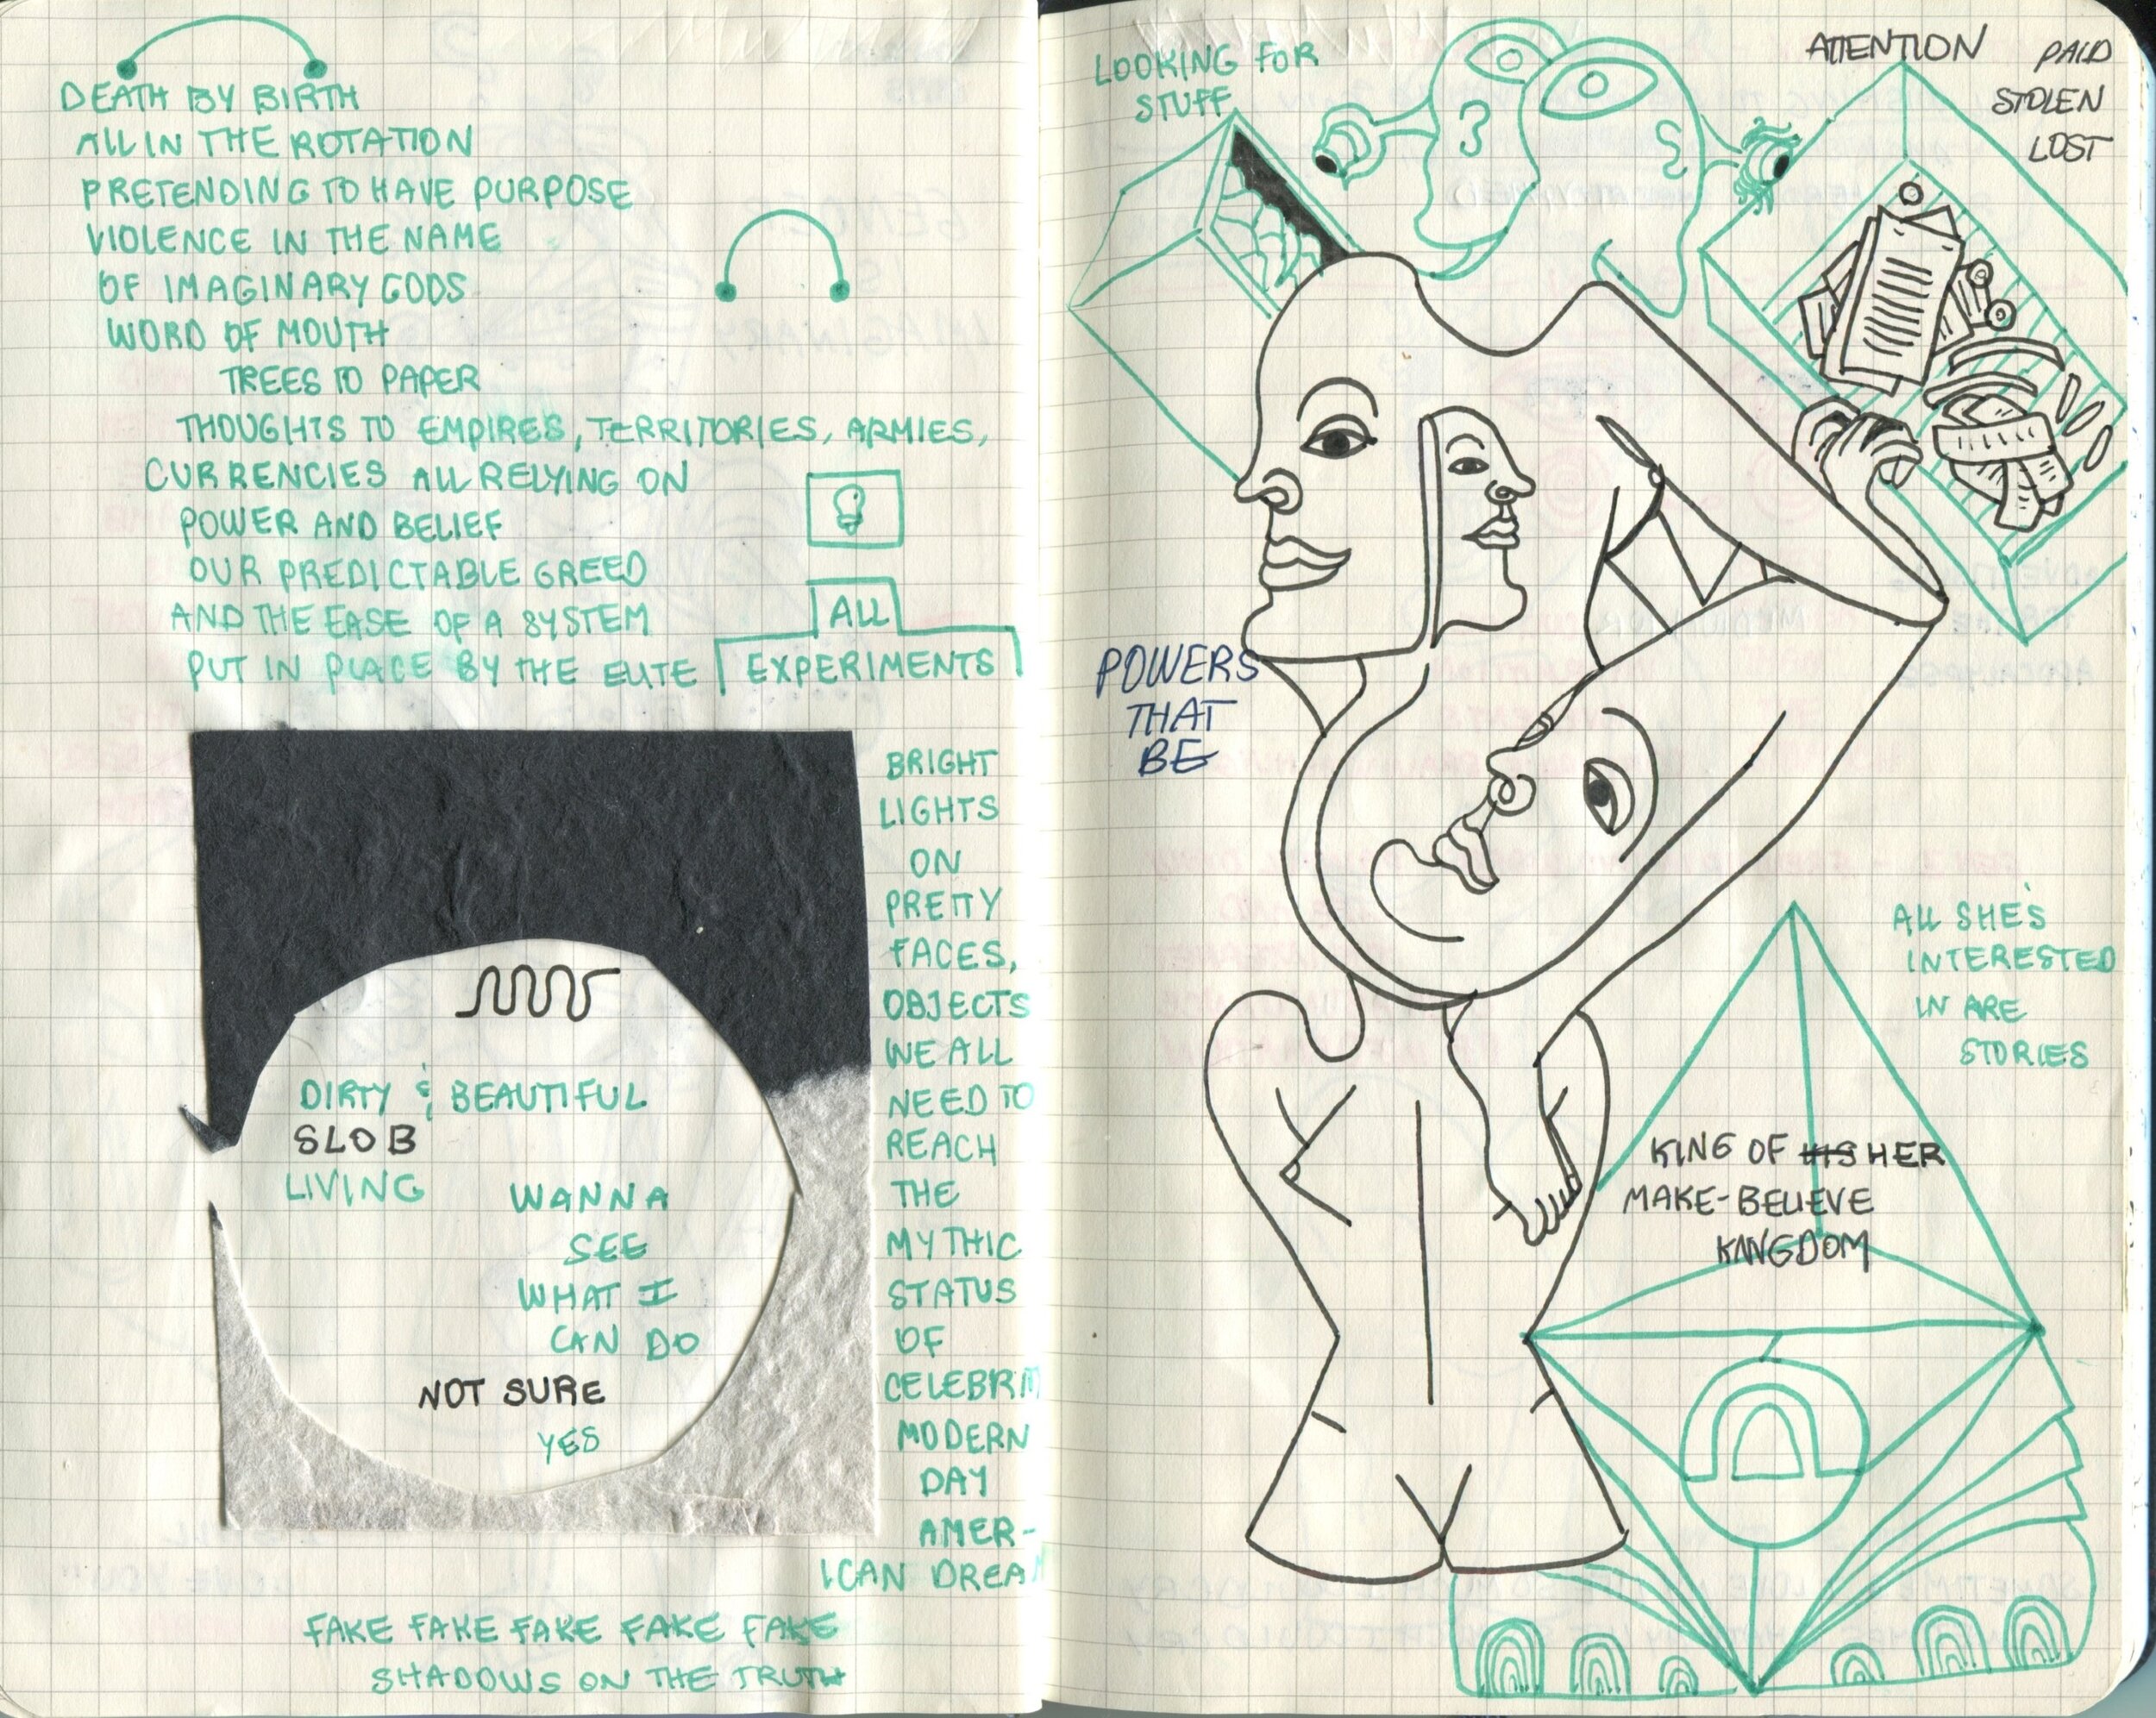 DEATH BY BIRTH
ALL IN THE ROTATION
PRETENDING TO HAVE PURPOSE
VIOLENCE IN THE NAME
OF IMAGINARY GODS
WORD OF MOUTH
TREES TO PAPER
THOUGHTS TO EMPIRES, TERRITORIES, ARMIES,
CURRENCIES ALL RELYING ON
POWER AND BELIEF
OUR PREDICTABLE GREED
AND THE EASE OF A SYSTEM
PUT IN PLACE BY THE ELITE
ALL
EXPERIMENTS
BRIGHT
LIGHTS
ON
PRETTY
FACES,
OBJECTS
WE ALL
NEED TO
REACH
THE
MYTHIC
STATUS
OF
CELEBRIT
MODERN
DAY
AMER-
ICAN DREA
DIRTY & BEAUTIFUL
SLOB
LIVING
WANNA
SEE
WHAT I
CAN DO
NOT SURE
YES
FAKE FAKE FAKE FAKE FAKE
SHADOWS ON THE TRUTH
LOOKING FOR
STUFF
ATTENTION
PAID
STOLEN
LOST
POWERS
THAT
BE
ALL SHE'S
INTERESTED
IN ARE
STORIES
KING OF HIS HER
MAKE-BELIEVE
KINGDOM